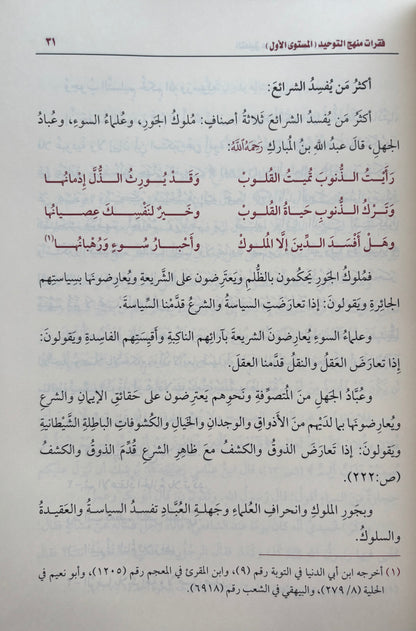 فقرات منهج التوحيد (المستوى الأول)
٣١
أكثرُ مَن يُفسِدُ الشرائعَ:
أكثرُ مَن يُفسِدُ الشرائعَ ثلاثةُ أصنافٍ: مُلوكُ الجَورِ، وعُلماءُ السوءِ، وعُبادُ
الجهلِ، قالَ عبدُ اللهِ بنُ المباركِ رَحِمَهُ اللَّهُ:
رَأَيْتُ الذُّنوبَ تُميتُ القُلوبَ وقَدْ يُورِثُ الذُّلَّ إدْمانُها
وتَرْكُ الذنوبِ حياةُ القُلوبِ وخَيرٌ لنَفْسِكَ عِصيانُها
وهَلْ أفسَدَ الدينَ إلَّا الملوكُ وأحبارُ سُوءٍ ورُهْبانُها (١)
فمُلوكُ الجَورِ يَحكُمون بالظُّلمِ ويَعتَرِضون على الشَّريعةِ ويُعارِضونَها بسِياستِهم
الجائِرةِ ويَقولونَ: إذا تعارَضَتِ السياسةُ والشرعُ قدَّمْنا السِّياسةَ.
وعلماءُ السوءِ يُعارِضونَ الشريعةَ بآرائِهم الناكِبةِ وأقيِسَتِهم الفاسِدةِ ويَقولونَ:
إذا تعارَضَ العَقلُ والنقلُ قدَّمنا العقلَ.
وعُبَّادُ الجَهلِ منَ المُتصوِّفةِ ونَحوِهم يَعتَرِضون على حَقائقِ الإيمانِ والشرعِ
ويُعارِضونَها بما لدَيْهم منَ الأذواقِ والوِجدانِ والخَيالِ والكُشوفاتِ الباطِلةِ الشَّيْطانيةِ
ويَقولونَ: إذا تعارَضَ الذوقُ والكشفُ مَعَ ظاهِرِ الشرعِ قُدِّمَ الذوقُ والكشفُ
(ص:٢٢٢).
وبجَورِ الملوكِ وانحِرافِ العُلماءِ وجَهَلةِ العُبَّادِ تَفسدُ السياسةُ والعَقيدةُ
والسلوكُ.
(١) أخرجه ابن أبي الدنيا في التوبة رقم (٩)، وابن المقرئ في المعجم رقم (١٢٠٥)، وأبو نعيم في
الحلية (٢٧٩/٨)، والبيهقي في الشعب رقم (٦٩١٨).